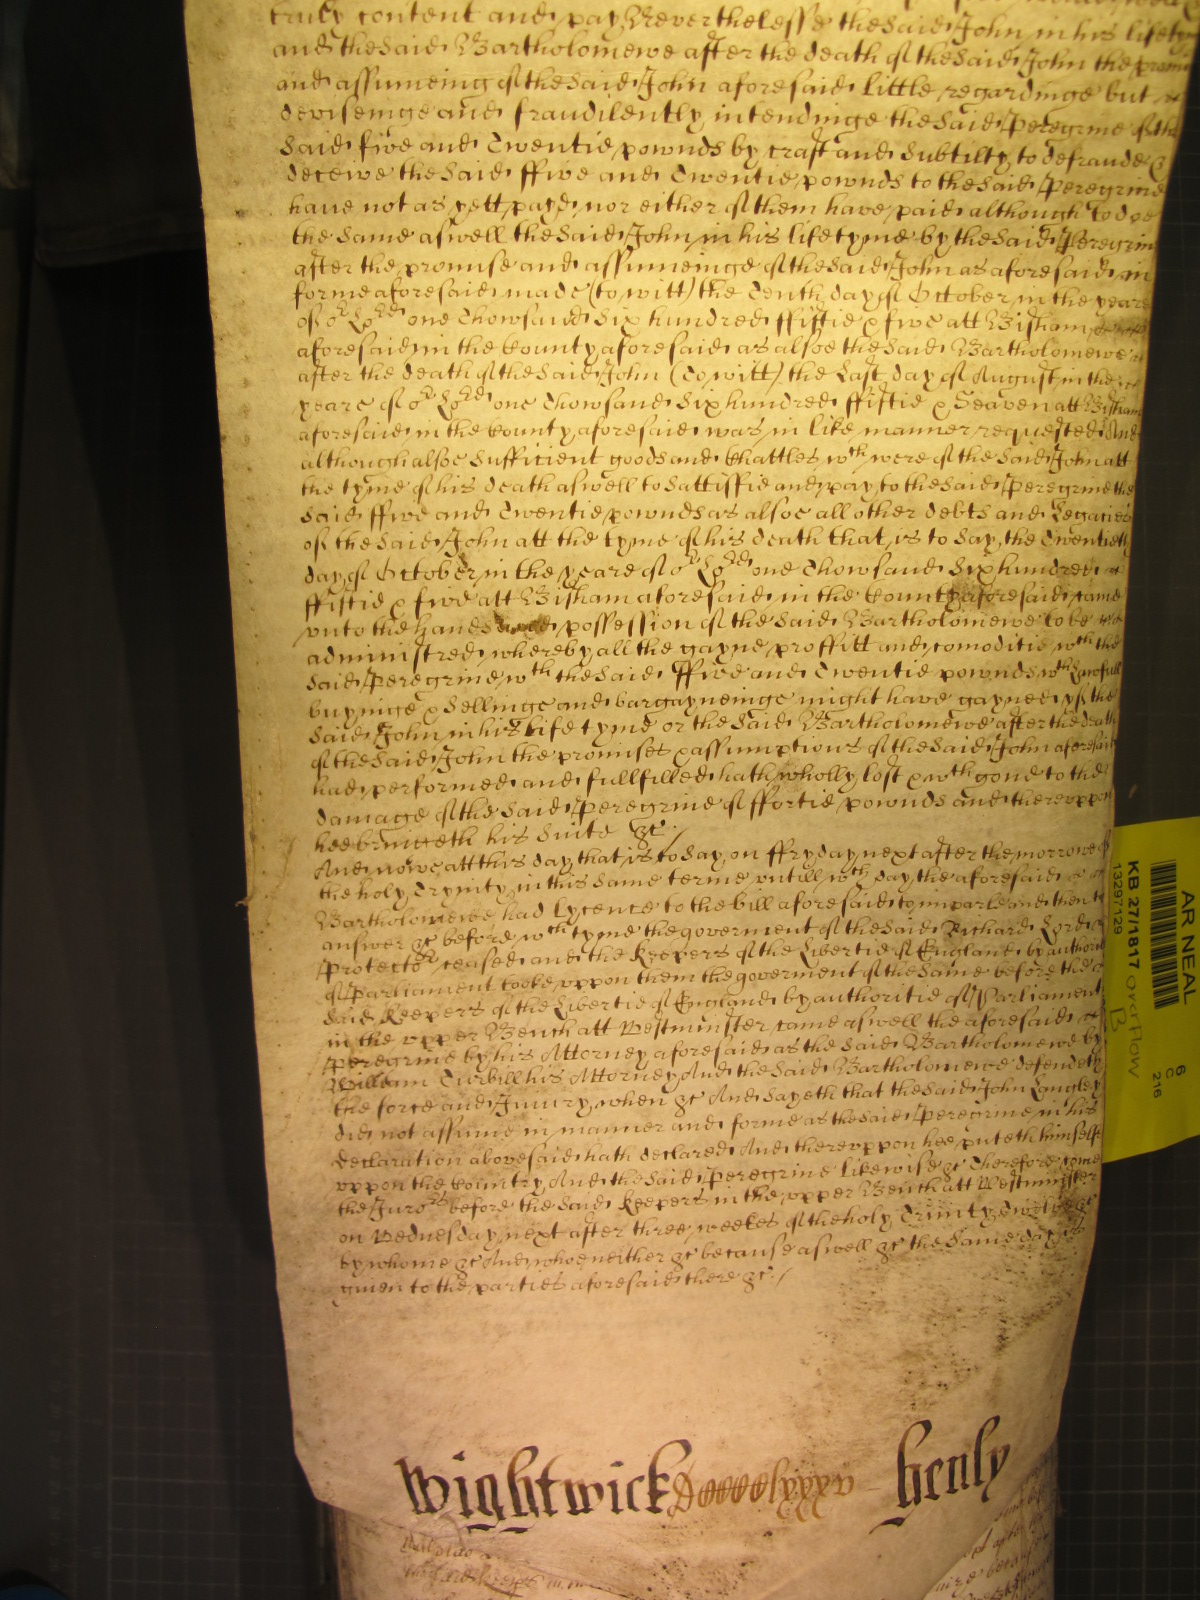 truly content and pay Neverthelesse the said John in his lifetyme
and the said Bartholomewe after the death of the said John the
and assumeing of the said John aforesaid little regardinge but
deviseinge and fraudilently intendinge the said Peregrine of the
said five and Twentie pownds by craft and subtilty to defraude &
deceive the said ffive and Twentie pownds to the said Peregrine
have not as yett payd nor either of them have paid although to doe
the same aswell the said John in his life tyme by the said Peregrine
after the promise and assumeinge of the said John as aforesaid in
forme aforesaid made (to witt) the Tenth day of October in the yeare
of or Lord one Thowsand six hundred ffiftie & five att Bisham
aforesaid in the County aforesaid as alsoe the said Bartholomewe
after the death of the said John (to witt) the Last day of August in the
yeare of or Lord one Thowsand six hundred ffiftie & Seaven att Bisham
aforesaid in the County aforesaid was in like manner requested And
although alsoe sufficient goods and Chattles wch were of the said John att
the tyme of his death aswell to sattisfie and pay to the said Peregrine the
said ffive and Twentie pownds as alsoe all other debts and Legacies
of the said John att the tyme of his death that is to say the Twentieth
day of October in the yeare of or Lord one Thowsand six hundred
ffiftie & five att Bisham aforesaid in the County aforesaid came
unto the hands and possession of the said Bartholomewe to be
administred whereby all the gayne proffitt and comoditie wch the
said Peregrine wth the said ffive and Twentie pownds wth Lawfull
buyinge & sellinge and bargayneinge might have gayned yf the
said John in his life tyme or the said Bartholomewe after the death
of the said John the promises & assumptions of the said John aforesaid
had performed and fullfilled hath wholly lost & wthgone to the
damage of the said Peregrine of ffortie pownds and thereuppon
hee bringeth his suite &c /
And nowe att this day that is to say on ffryday next after the morrowe of
the holy Trynity in this same terme untill wch day the aforesaid
Bartholomewe had lycence to the bill aforesaid to imparle and then to
answer &c before wch tyme the goverment of the said Richard Lord
Protector ceased and the Keepers of the Libertie of England by authoritie
of Parliament tooke uppon them the goverment of the same before the
said Keepers of the Libertie of England by authoritie of Parliament
in the upper Bench att Westminster came aswell the aforesaid
Peregrine by his Attorney aforesaid as the said Bartholomewe by
William Turbill his Attorney And the said Bartholomewe defendeth
the force and Injury when &c And sayeth that the said John Langley
did not assume in manner and forme as the said Peregrine in his
declaration abovesaid hath declared And thereuppon hee puteth himselfe
uppon the Country And the said Peregrine likewise &c Therefore come
the Jurors before the said Keepers in the upper Bench att Westminster
on Wednesday next after three weekes of the holy Trinity
by whome &c And whoe neither &c because aswell &c the same day is
given to the parties aforesaid there &c /
Wightwick
Henly
AR NEAL
KB 27/1817 overflow
13297129
B
6
C
216